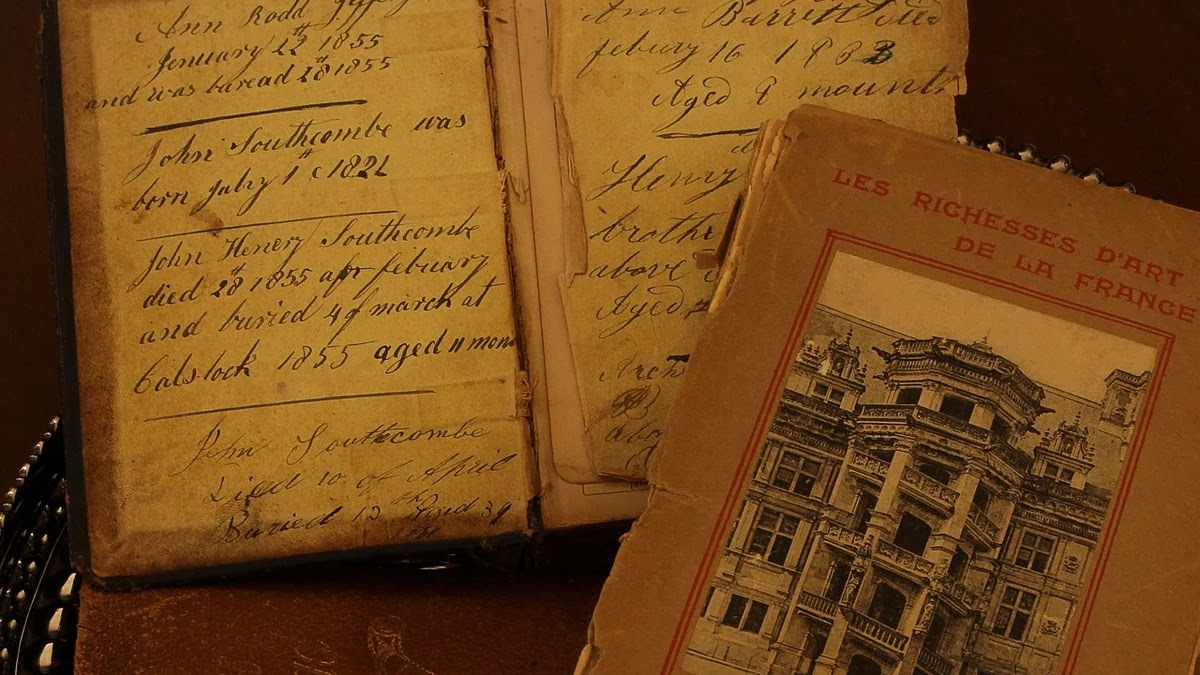 Ann Rodd
January 22 1855
and was buread 28 1855
John Southcombe was
born July 1st 1821
John Henery Southcombe
died 28 1855 febuary
and buried 4 of march at
Calstock 1855 aged 11 mon
John Southcombe
Died 10 of April
Buried 12th
Ann Barrett died
febury 16 1883
Aged 8 mounts
Henry
brothe
above
Aged
LES RICHESSES D'ART
DE LA FRANCE